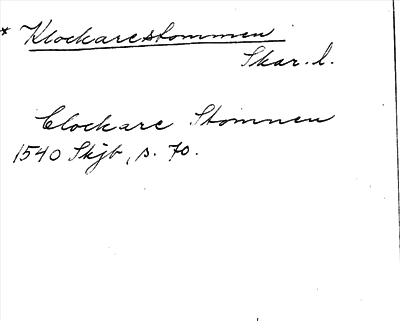 * Klockarestommen
Skar. l.
Clockare Stomnen
1540 Skjb, s. 70.